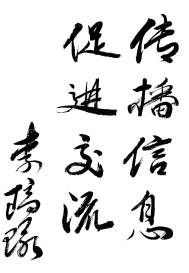 传播信息
促进交流
李